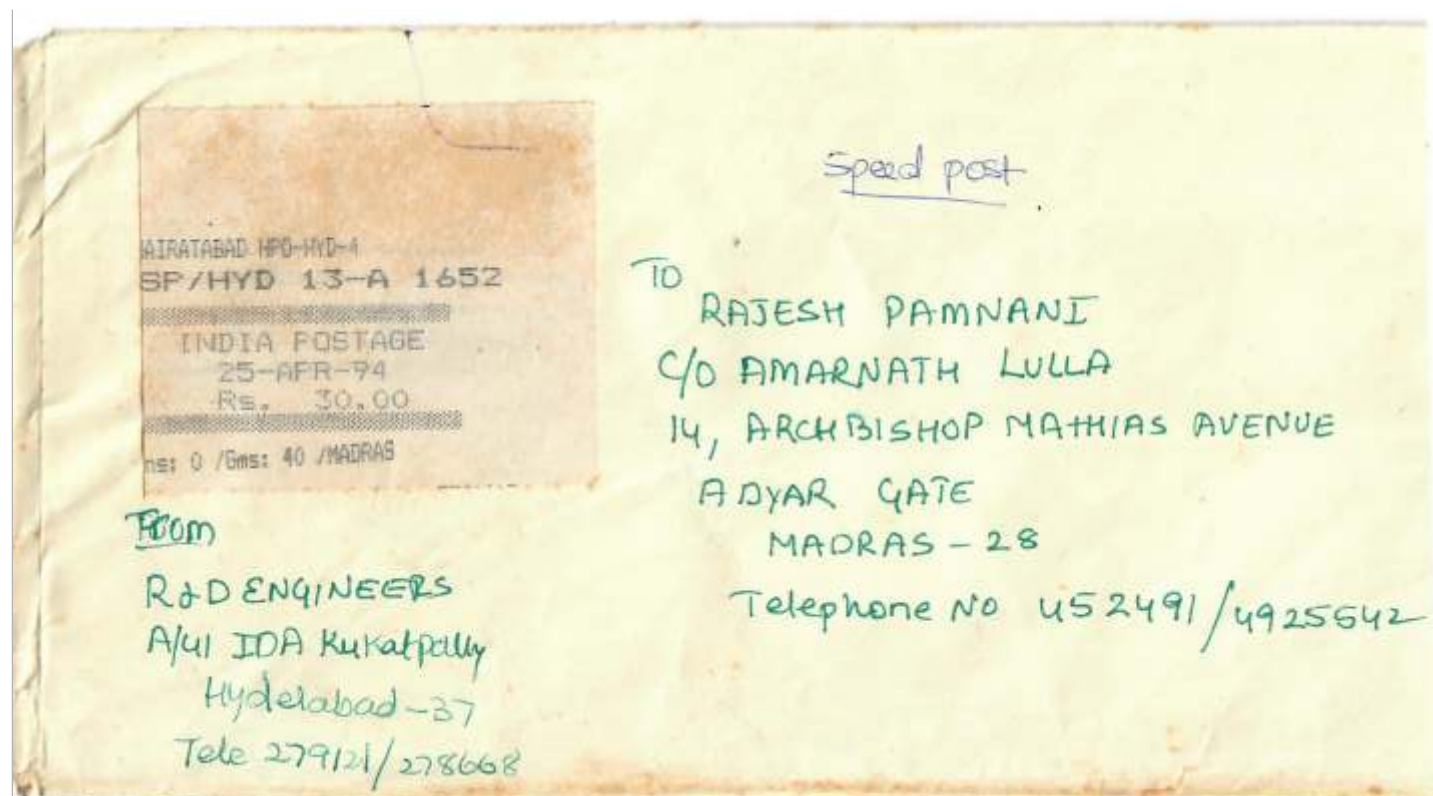 Speed post
AIRATABAD HPO-HYD-4
SP/HYD 13-A 1652
INDIA POSTAGE
25-APR-94
Rs. 30.00
ns: 0 /Gms: 40 /MADRAS
TO
RAJESH PAMNANI
C/O AMARNATH LULLA
14, ARCHBISHOP MATHIAS AVENUE
ADYAR GATE
MADRAS - 28
Telephone No 452491/4925542
From
R&D ENGINEERS
A/41 IDA Kukatpally
Hyderabad-37
Tele 279121/278668